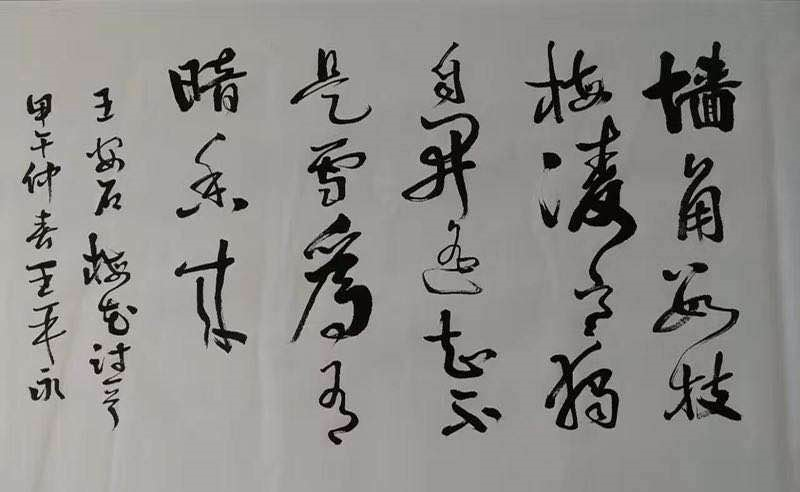 墙角数枝
梅凌寒独
自開遥知不
是雪為有
暗香来
王安石梅花诗一首
甲午仲春王平永